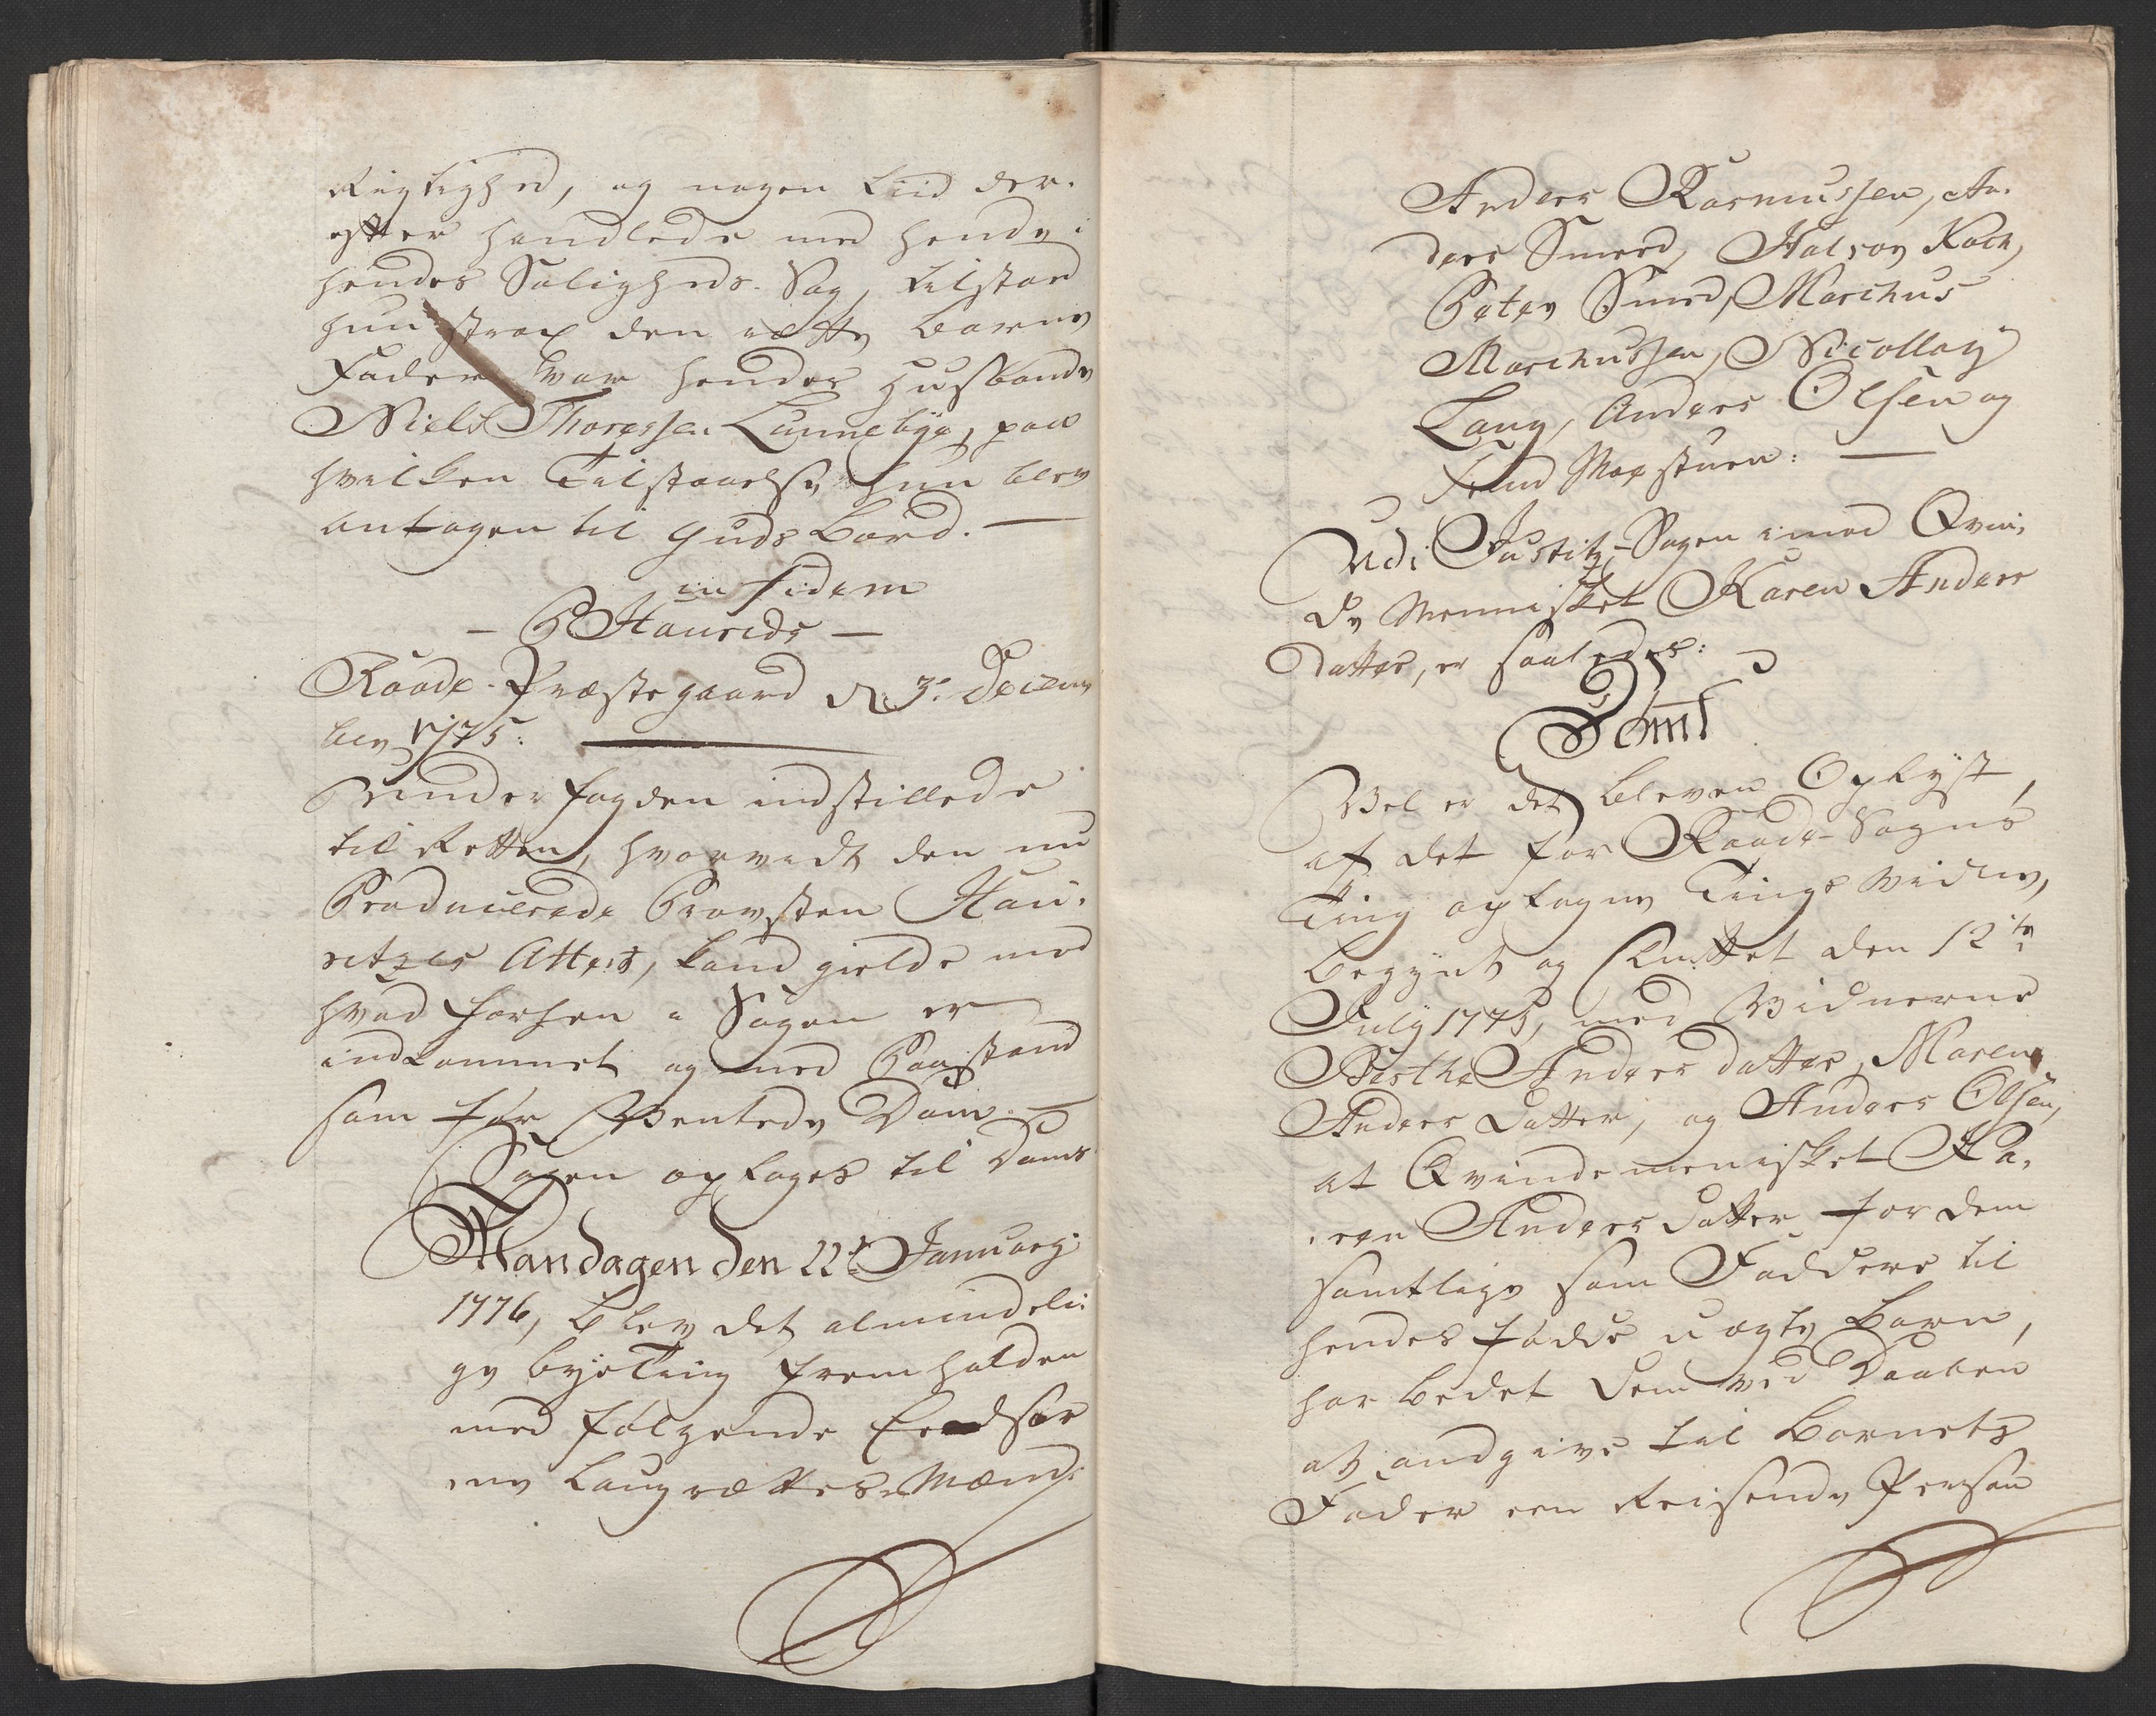 Rigtighed, og nogen Tiid der-
efter handlede med hende i
hendes Saligheds-Sag, tilstod
hun strax den rette Barne
Fader var hendes Husbonde
Niels Thoresen Lunnebye, paa
hvilken Tilstaaelse hun blev
antagen til Guds Bord. —
in fidem
— P Hauridz —
Raade-Præstegaard d 3.e Decem
ber 1775: —
Underfogden indstillede
til Retten, hvorvidt den nu
Producerede Provsten Hau-
ritzes Attest, kand gielde mod
hvad forhen i Sagen er
indkommet og med Paastand
som før Ventede Dom. —
Sagen optages til Doms
Mandagen den 22de Januarij
1776, blev det almindeli-
ge byeting fremholden
med følgende Eedsor
ne Laugrættes-Mænd:
Anders Rasmussen, An-
ders Smed, Halvor Koch,
Peter Smed, Marchus
Marchussen, Nicollay
Lang, Anders Olsen og
Find Moestuen: —
Udi Justitz-Sagen imod Qvin-
de Mennisket Karen Anders
Datter, er saaledes:
Dømt
Vel er det bleven Oplyst,
af det for Raade-Sogns
Ting optagne Tings Vidne,
begyndt og sluttet den 12te
July 1775, med Vidnerne
Berthe Anders datter, Maren
Anders Datter, og Anders Olsen,
at Qvindemenisket Ka-
ren Anders datter for dem
samtlige som Faddere til
hendes fødde uægte Barn,
har bedet dem ved Daaben
at andgive til Barnets
Fader een Reisende Person